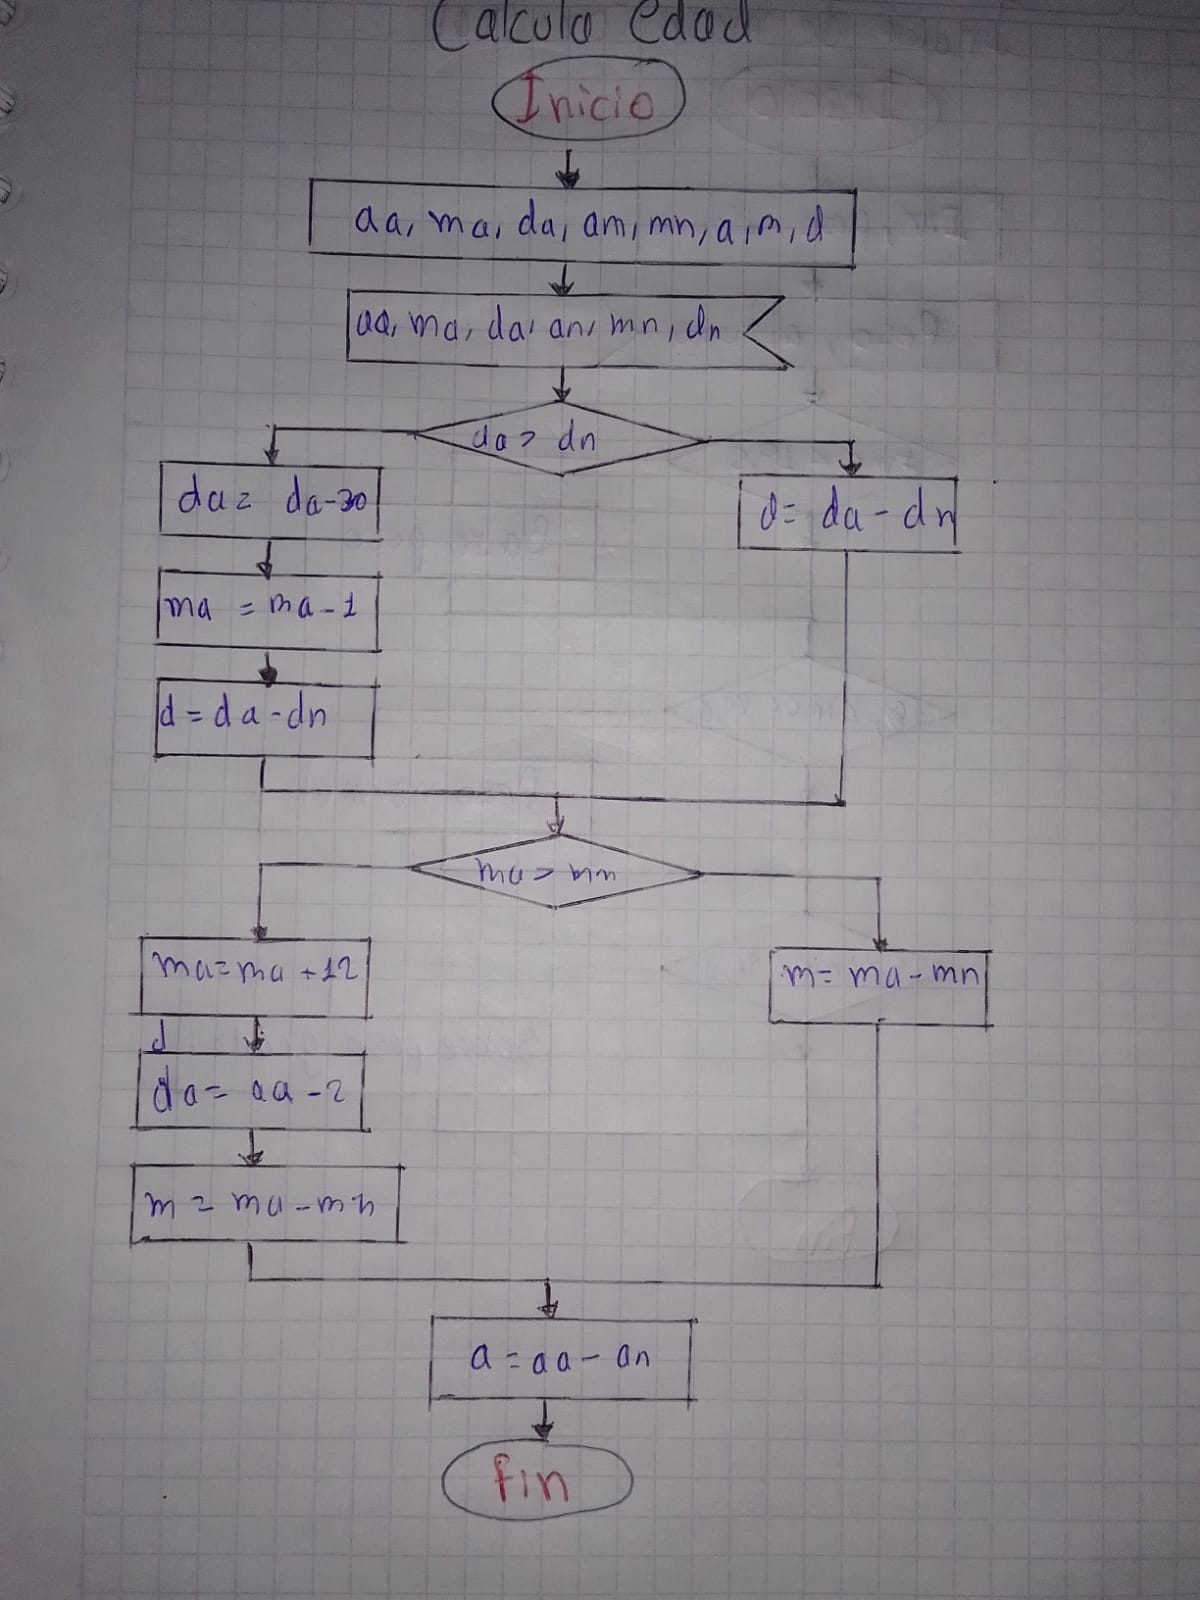 Calculo edad
Inicio
aa, ma, da, am, mn, a, m, d
aa, ma, da, an, mn, dn
da > dn
da = da-30
d = da - dn
ma = ma - 1
d = da - dn
ma > mn
ma = ma + 12
m = ma - mn
d
da = aa - 2
m = ma - mn
a = aa - an
fin